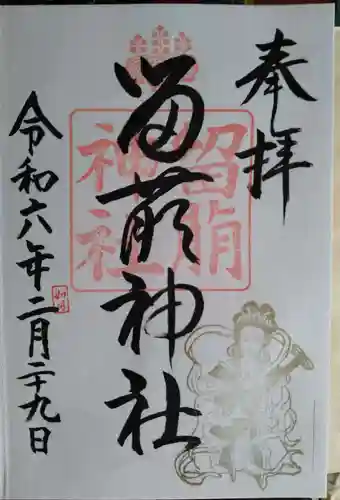 奉拝
留萌神社
留萌
神社
令和六年二月二十九日